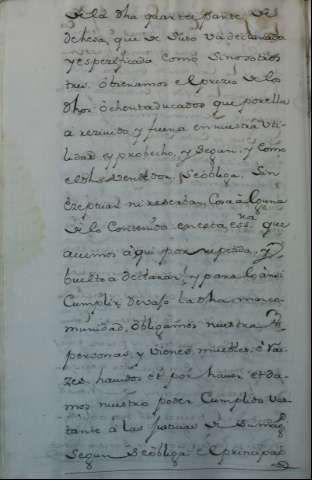 de la dha quarta parte de
dehesa, que de Suso va declarada
y espesificada como Si nosotros
tres, obtenamos el prezio de los
dhos ochenta ducados que por ella
a rezivido, y fuera en nuestra Uti-
lidad, y probecho, y Segun, y como
el dho Vendedor, Se obliga, Sin
Exeptuar ni reservar, Cosa alguna
de lo Contenido en esta, essra que
avemos aqui por repetida, y
buelto a declarar, y para lo ansi
Cumplir devajo la dha manco-
munidad, obligamos nuestras
personas, y vienes, muebles, o rai-
zes, havidos et por haver et da-
mos nuestro poder Cumplido vas-
tante a las Justicias de Su mag
Segun Se obliga el prinzipal